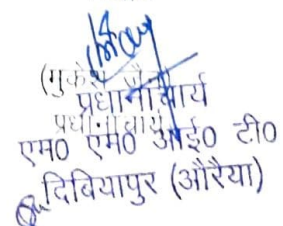 (मुकेश
प्रधानाचार्य
प्रधानाचार्य
एम0 एम0 आई0 टी0
दिबियापुर (औरैया)